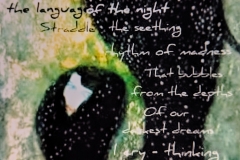 the language of the night
Straddle the seething
rhythm of madness
That bubbles
from the depths
Of our
darkest dreams
I cry - thinking